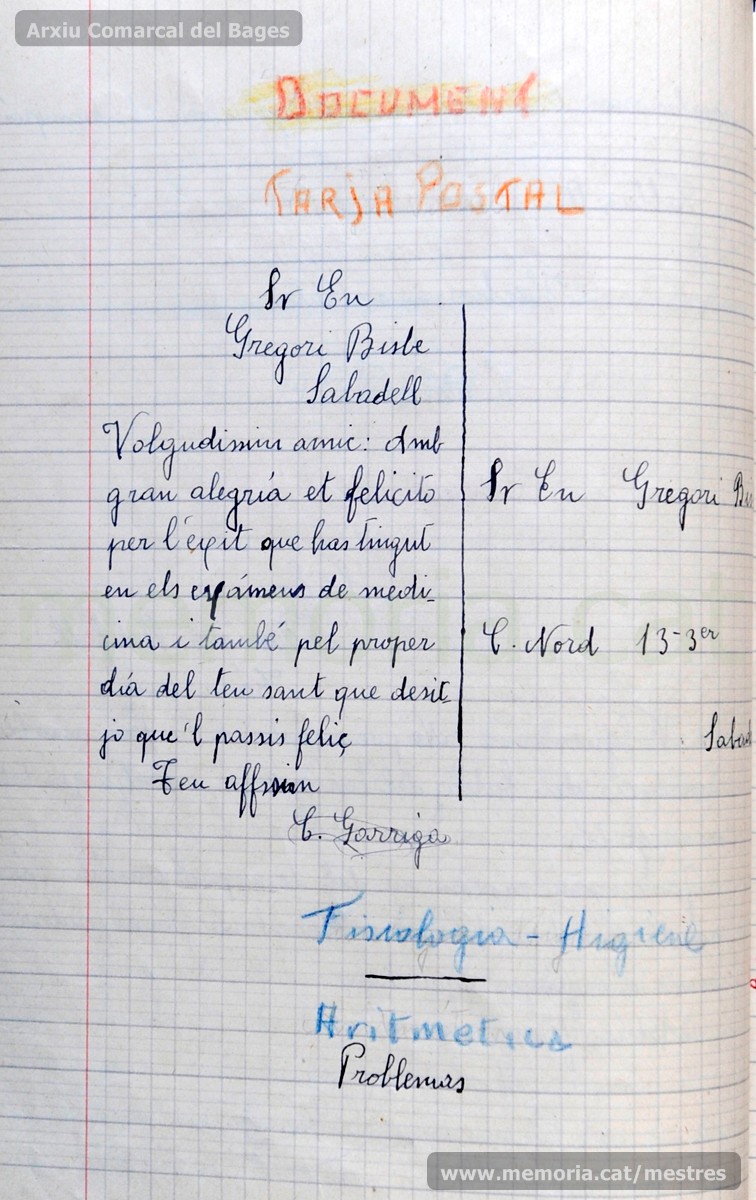 Arxiu Comarcal del Bages
DOCUMENT
TARJA POSTAL
Sr En
Gregori Bisbe
Sabadell
Volgudissim amic: Amb
gran alegría et felicito
per l'éxit que has tingut
en els exámens de medi-
cina i també pel proper
día del teu sant que desit-
jo que'l passis feliç
Teu affmm
C. Garriga
Sr En Gregori
C. Nord 13-3er
Fisiologia - Higiene
Aritmetica
Problemas
www.memoria.cat/mestres